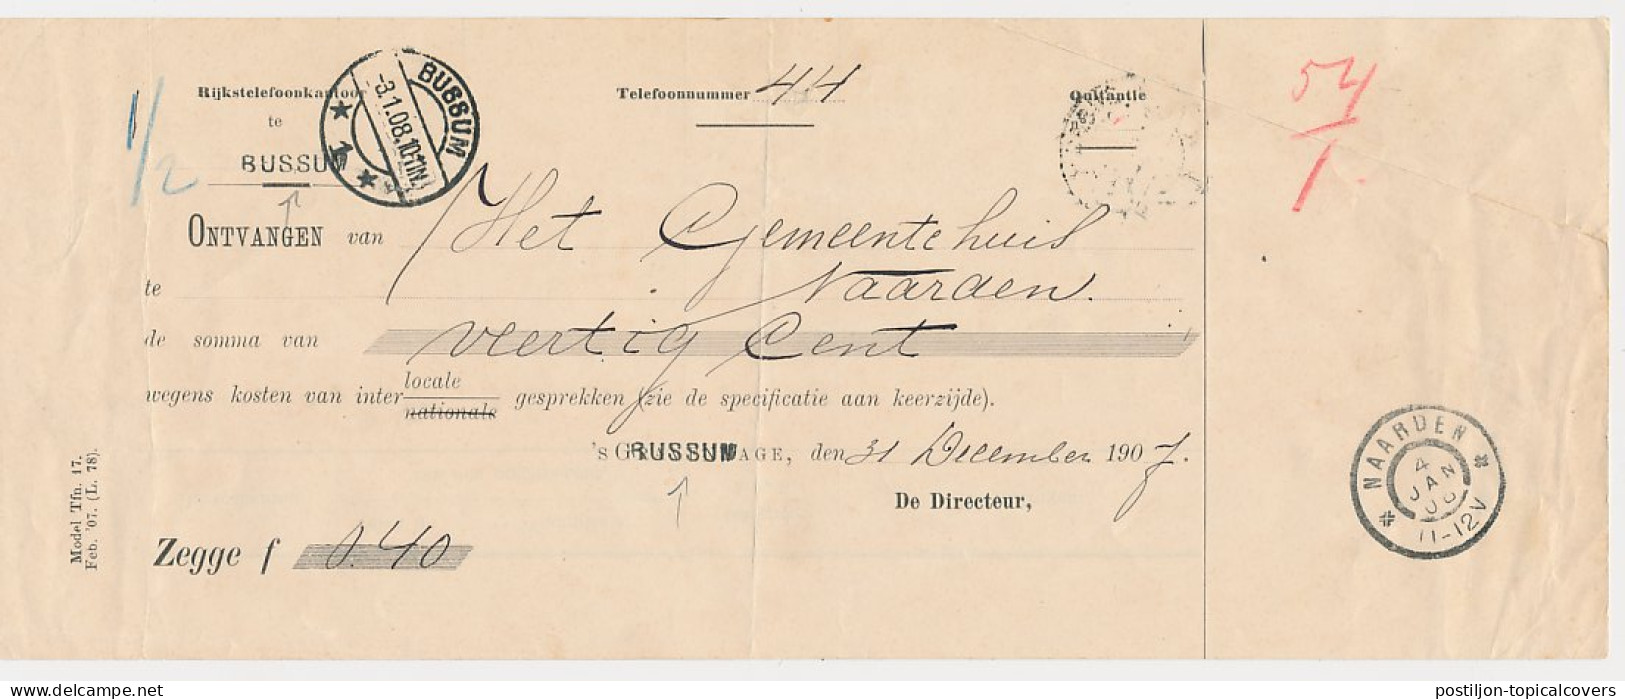 Rijkstelefoonkantoor
te
BUSSUM
Telefoonnummer 44
Quitantie
BUSSUM
-3.1.08.10-11N.
1
1/2
54/1
ONTVANGEN van Het Gemeentehuis
te Naarden.
de somma van Veertig Cent
wegens kosten van inter locale
nationale gesprekken (zie de specificatie aan keerzijde).
's G BUSSUM AGE, den 31 December 1907.
De Directeur,
Zegge f 0.40
Model Tfn. 17.
Feb. '07. (L. 78).
NAARDEN
4
JAN
11-12V
delcampe.net
postiljon-topicalcovers